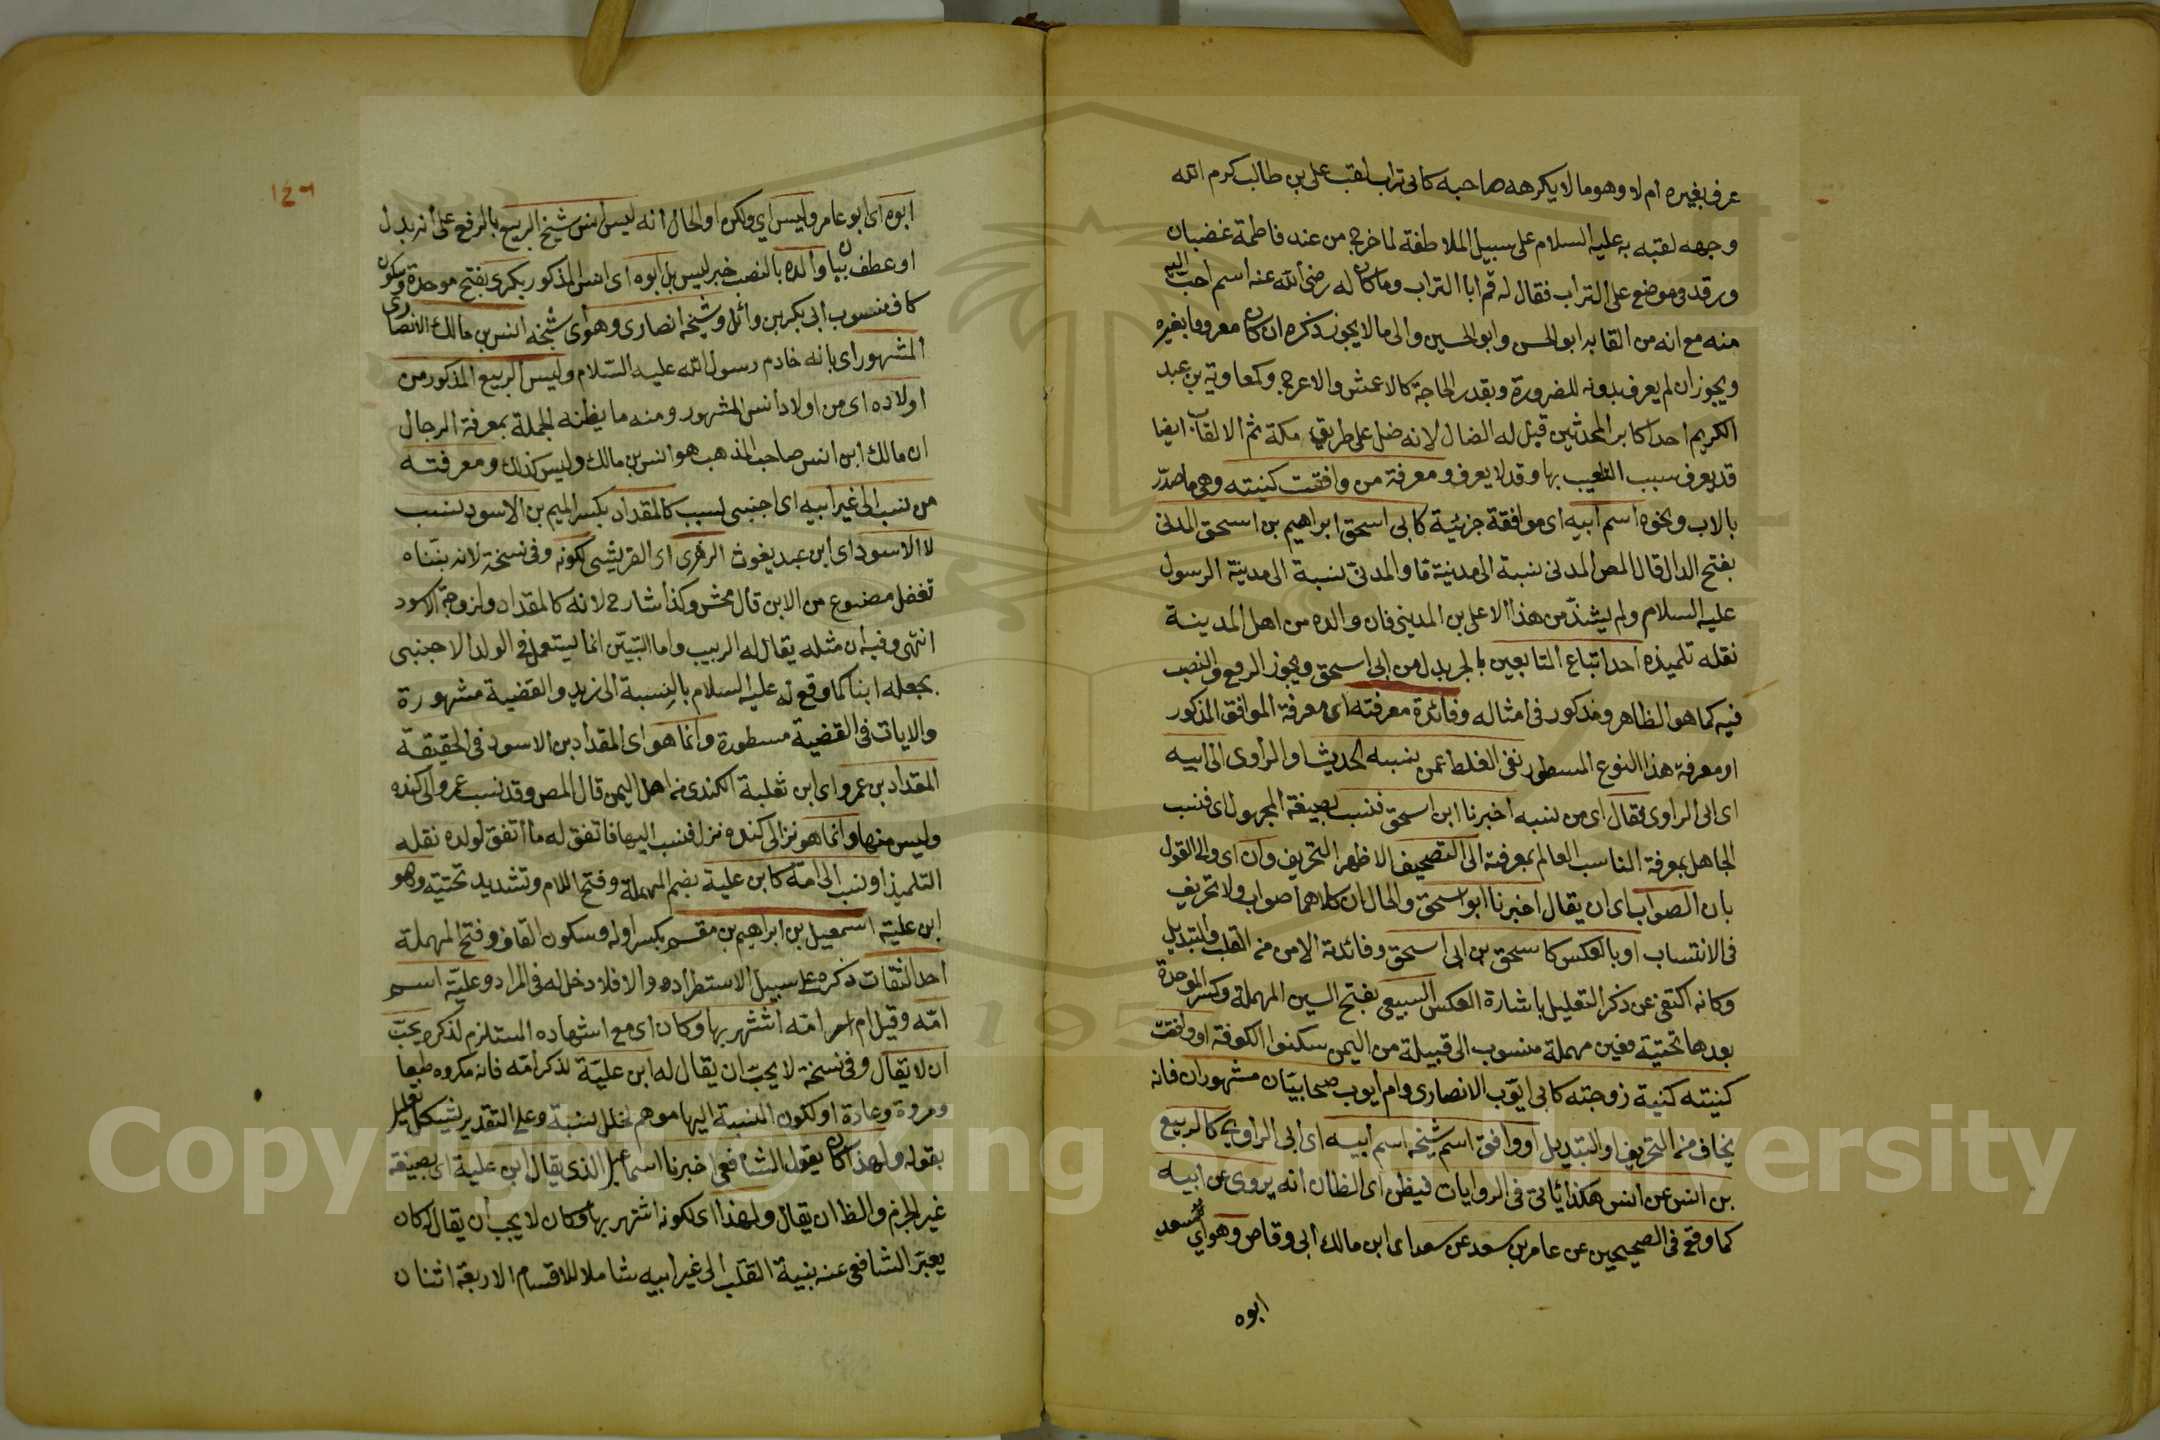 عرف بغيره ام لا وهو ما لا يكرهه صاحبه كابى تراب لقب على بن طالب كرم الله
وجهه لقبه به عليه السلام على سبيل الملاطفة لما خرج من عند فاطمة غضبان
ورقد فى موضع على التراب فقال له قم ابا التراب وما كان له رضى الله عنه اسم احب اليه
منه مع انه من القابه ابو الحسن وابو الحسين والى ما لا يجوز ذكره ان كان معروفا بغيره
ويجوز ان لم يعرف بدونه للضرورة وبقدر الحاجة كالاعمش والاعرج وكمعاوية بن عبد
الكريم احد اكابر المحدثين قيل له الضال لانه ضل على طريق مكة ثم الالقاب ايضا
قد يعرف سبب التلقيب بها وقد لا يعرف ومعرفة من وافقت كنيته وهى ما صدّر
بالاب ونحوه اسم ابيه اى موافقة جزئية كابى اسحق ابراهيم بن اسحق المدنى
بفتح الدال قال المص المدنى نسبة الى مدينة ما والمدنىّ نسبة الى مدينة الرسول
عليه السلام ولم يشذّ من هذا الا على بن المدينى فان والده من اهل المدينة
نقله تلميذه احد اتباع التابعين بالجر بدل من ابى اسحق ويجوز الرفع والنصب
فيه كما هو الظاهر ومذكور فى امثاله وفائدة معرفته اى معرفة الموافق المذكور
او معرفة هذا النوع المسطور نفى الغلط عمن نسبه لحديثا والراوى الى ابيه
اى الى الراوى فقال اى من نسبه اخبرنا ابن اسحق فنسب بصيغة المجهول اى فنسب
الجاهل بمعرفة الناسب العالم بمعرفته الى التصحيف الاظهر التحريف وان اى والى القول
بان الصواب اى ان يقال اخبرنا ابو اسحق والحال ان كلاهما صواب ولا تحريف
فى الانتساب او بالعكس كاسحق بن ابى اسحق وفائدته الامن من القلب والتبديل
وكانه اكتفى عن ذكر التعليل باشارة العكس السبيعى بفتح السين المهملة وكسر الموحدة
بعدها تحتية فعين مهملة منسوب الى قبيلة من اليمن سكنوا الكوفة او وافقت
كنيته كنية زوجته كابى ايّوب الانصارى وام ايوب صحابيّان مشهوران فانه
يخاف منه التحريف والتبديل او وافق اسم شيخه اسم ابيه اى ابى الراوى كالربيع
بن انس عن انس هكذا ياتى فى الروايات فيظن اى الظان انه يروى عن ابيه
كما وقع فى الصحيحين عن عامر بن سعد عن سعد اى ابن مالك ابى وقاص وهو اى سعد
ابوه
ابوه اى ابو عامر وليس اي ولكن او الحال انه ليس انس شيخ الربيع بالرفع على انه بدل
او عطف بيان والده بالنصب خبر ليس بل ابوه اى انس المذكور بكرى بفتح موحدة وسكون
كاف منسوب الى بكر بن وائل وشيخه انصارى وهو اى شيخه انس بن مالك الانصارى
المشهور اى بانه خادم رسول الله عليه السّلام وليس الربيع المذكور من
اولاده اى من اولاد أنس المشهور ومنه ما يظنه الجهلة بمعرفة الرجال
ان مالك ابن انس صاحب المذهب هو انس بن مالك وليس كذلك ومعرفته
من نسب الى غير ابيه اى اجنبى لسبب كالمقداد بكسر الميم بن الاسود نسب
لا الاسود اى ابن عبد يغوث الزهرى اى القريشى لكونه وفى نسخة لانه بتناه
تفعّل مصنوع من الابن قال محش وكذا شارح لانه كالمقداد ولزوجة الاسود
انتهى وفيه ان مثله يقال له الربيب واما التبنّى انما يستعمل فى الولد الاجنبى
بجعله ابنا كما وقع له عليه السلام بالنسبة الى زيد والقضية مشهورة
والايات فى القضية مسطورة وانما هو اى المقداد بن الاسود فى الحقيقة
المقداد بن عمرو اى ابن ثعلبة الكندى من اهل اليمن قال المص وقد نسب عمرو الى كنده
وليس منها وانما هو نزل الى كنده نزل فنسب اليها فاتفق له ما اتفق لولده نقله
التلميذ او نسب الى امّه كابن علية بضم المهملة وفتح اللام وتشديد تحتية وهو
ابن علية اسمعيل بن ابراهيم بن مقسم بكسر اوله وسكون القاف وفتح المهملة
احد الثقات ذكره على سبيل الاستطراد والا فلا دخل له فى المراد وعليّة اسم
امّه وقيل ام امه اشتهر بها وكان اى مع اشتهاده المستلزم لذكره يحبّ
ان لا يقال وفى نسخة لا يحبّ ان يقال له ابن عليّة لذكر امّه فانه مكروه طبعا
ومروة وعادة او لكون النسبة اليها موهم لخلل نسبة وعلى التقدير يشكل تعليل
بقوله ولهذا كان يقول الشافعى اخبرنا اسماعيل الذى يقال ابن علية اى بصيغة
غير الجزم والظا ان يقال ولهذا اى لكونه اشتهر بها وكان لا يحب أن يقال له كان
يعبّر الشافعى عنه بنية القلب الى غير ابيه شاملا للاقسام الاربعة اثنان
Copyright © King Saud University
1957